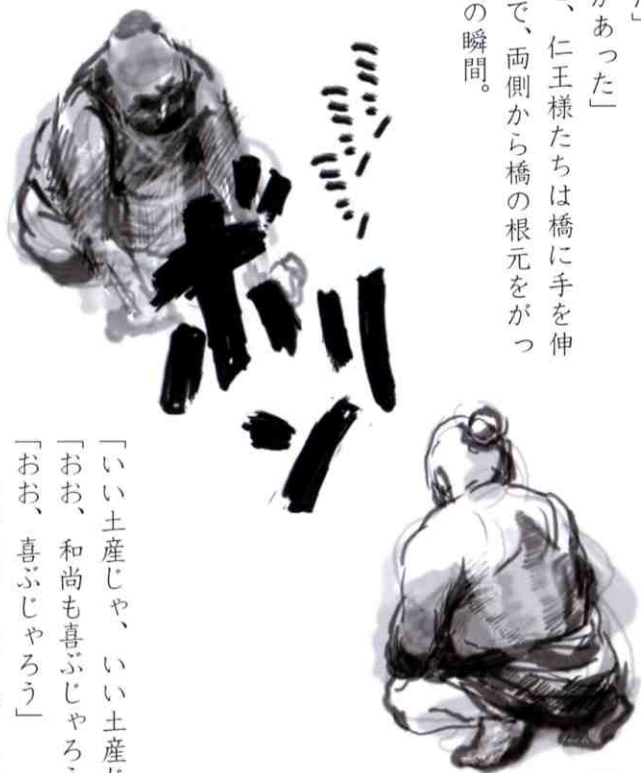 があった」
、仁王様たちは橋に手を伸
で、両側から橋の根元をがっ
の瞬間。
ミシミシ
ボリン
「いい土産じゃ、いい土産
「おお、和尚も喜ぶじゃろ
「おお、喜ぶじゃろう」